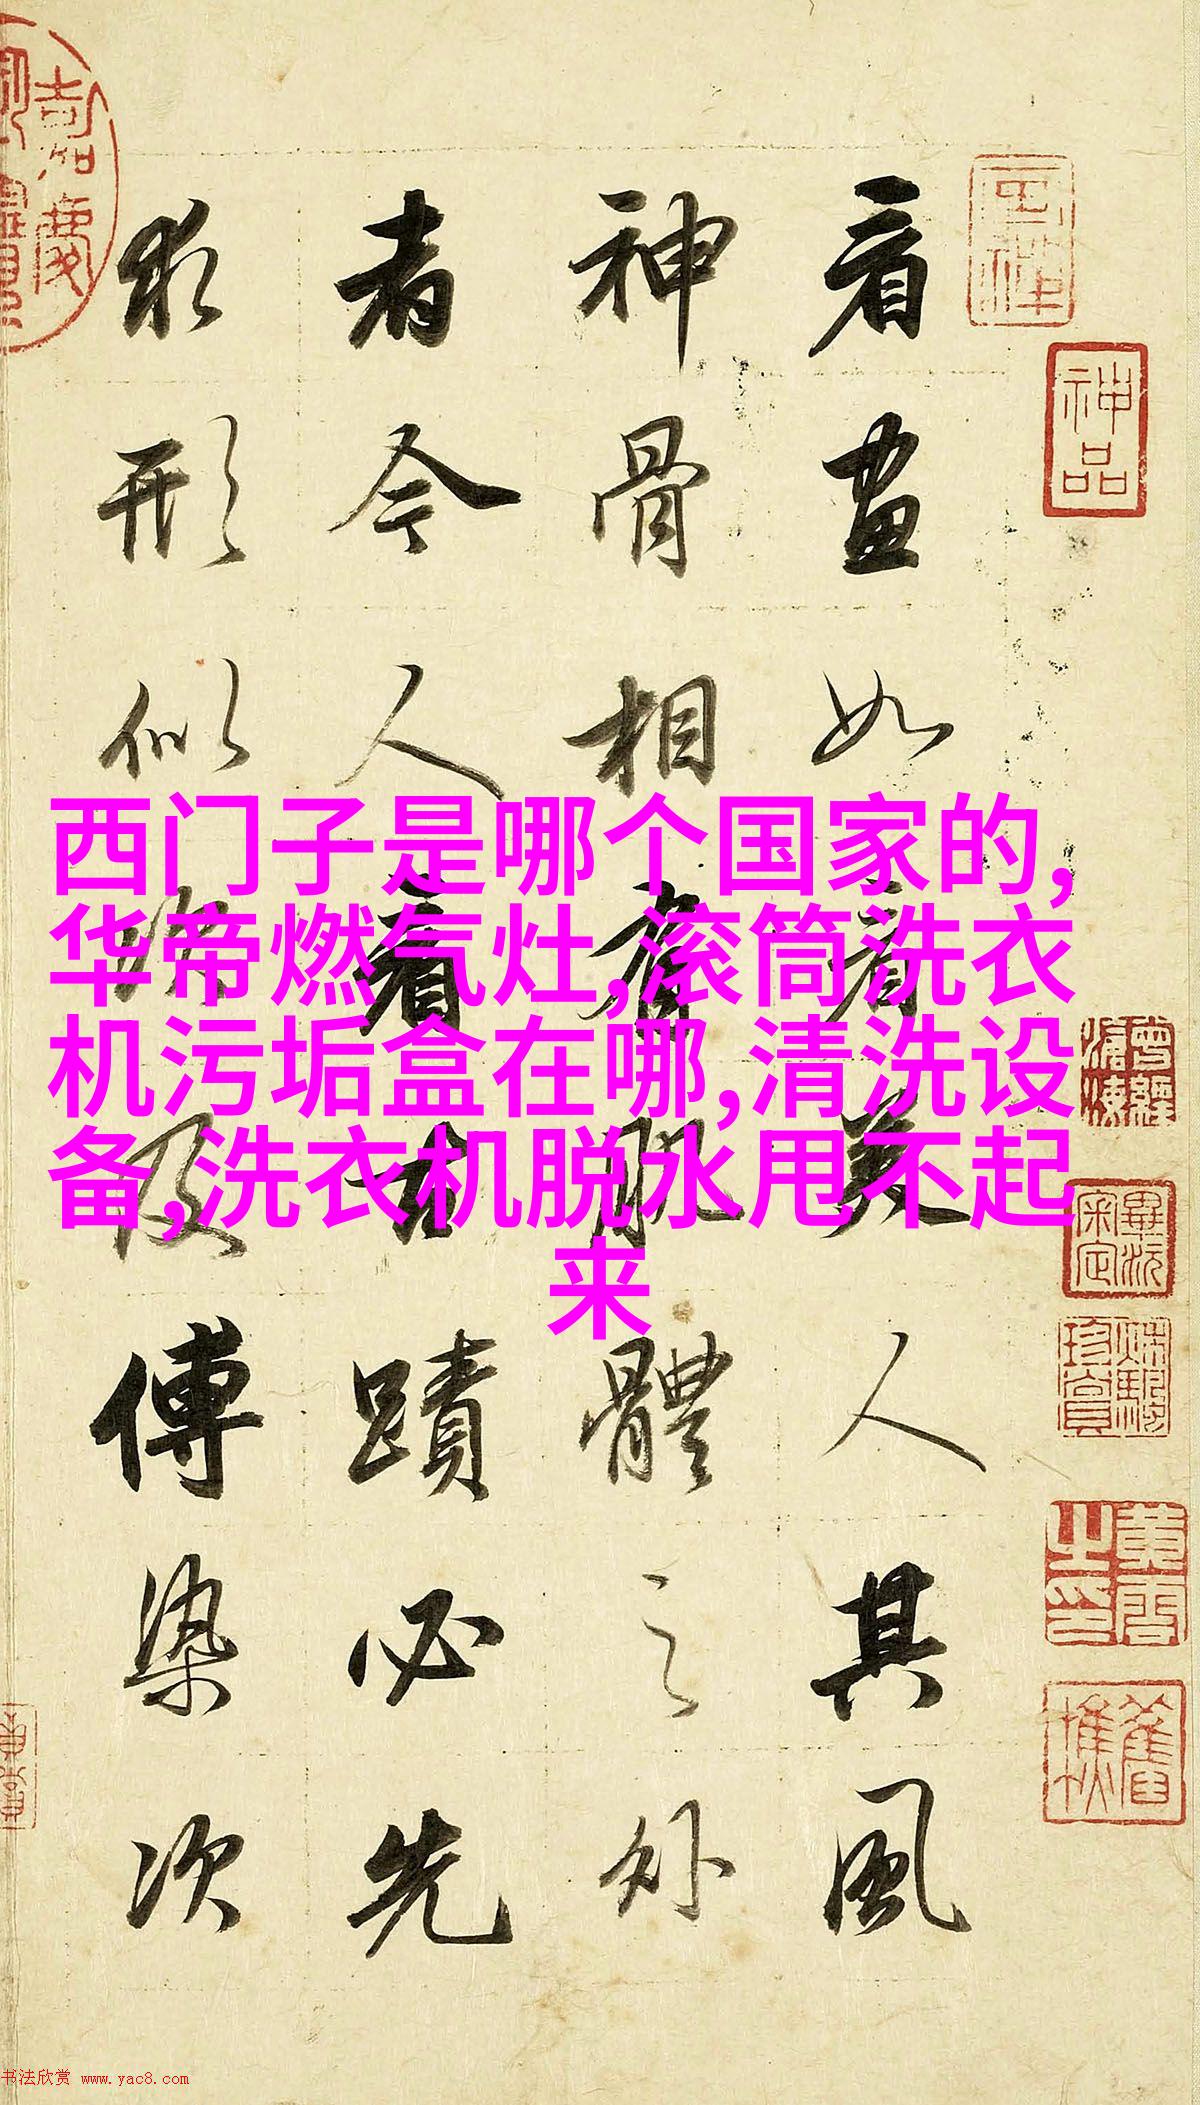 西门子是哪个国家的,
华帝燃气灶,滚筒洗衣
机污垢盒在哪,清洗设
备,洗衣机脱水甩不起
来
神品
看畫如看美人其風
神骨相有肌體之外
者今人看古蹟必先
求形似次及傅染次
书法欣赏 www.yac8.com